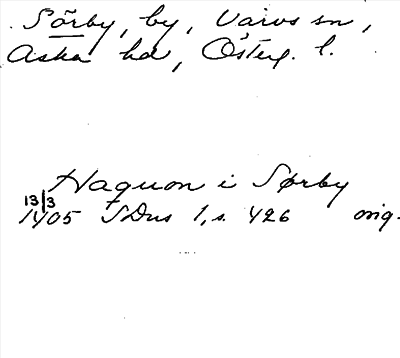 Sörby, by, Varvs sn,
Aska hd, Österg. l.
Haquon i Sørby
13/3
1405 SDns 1, s. 426 orig.